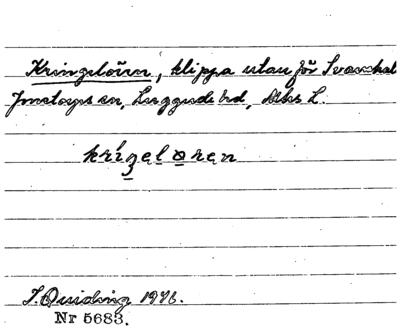 Kringelören, klippa utanför Svanshal
Jonstorps sn, Luggude hd, Mlhs L.
kríŋelǫren
J. Quiding 1946.
Nr 5683.